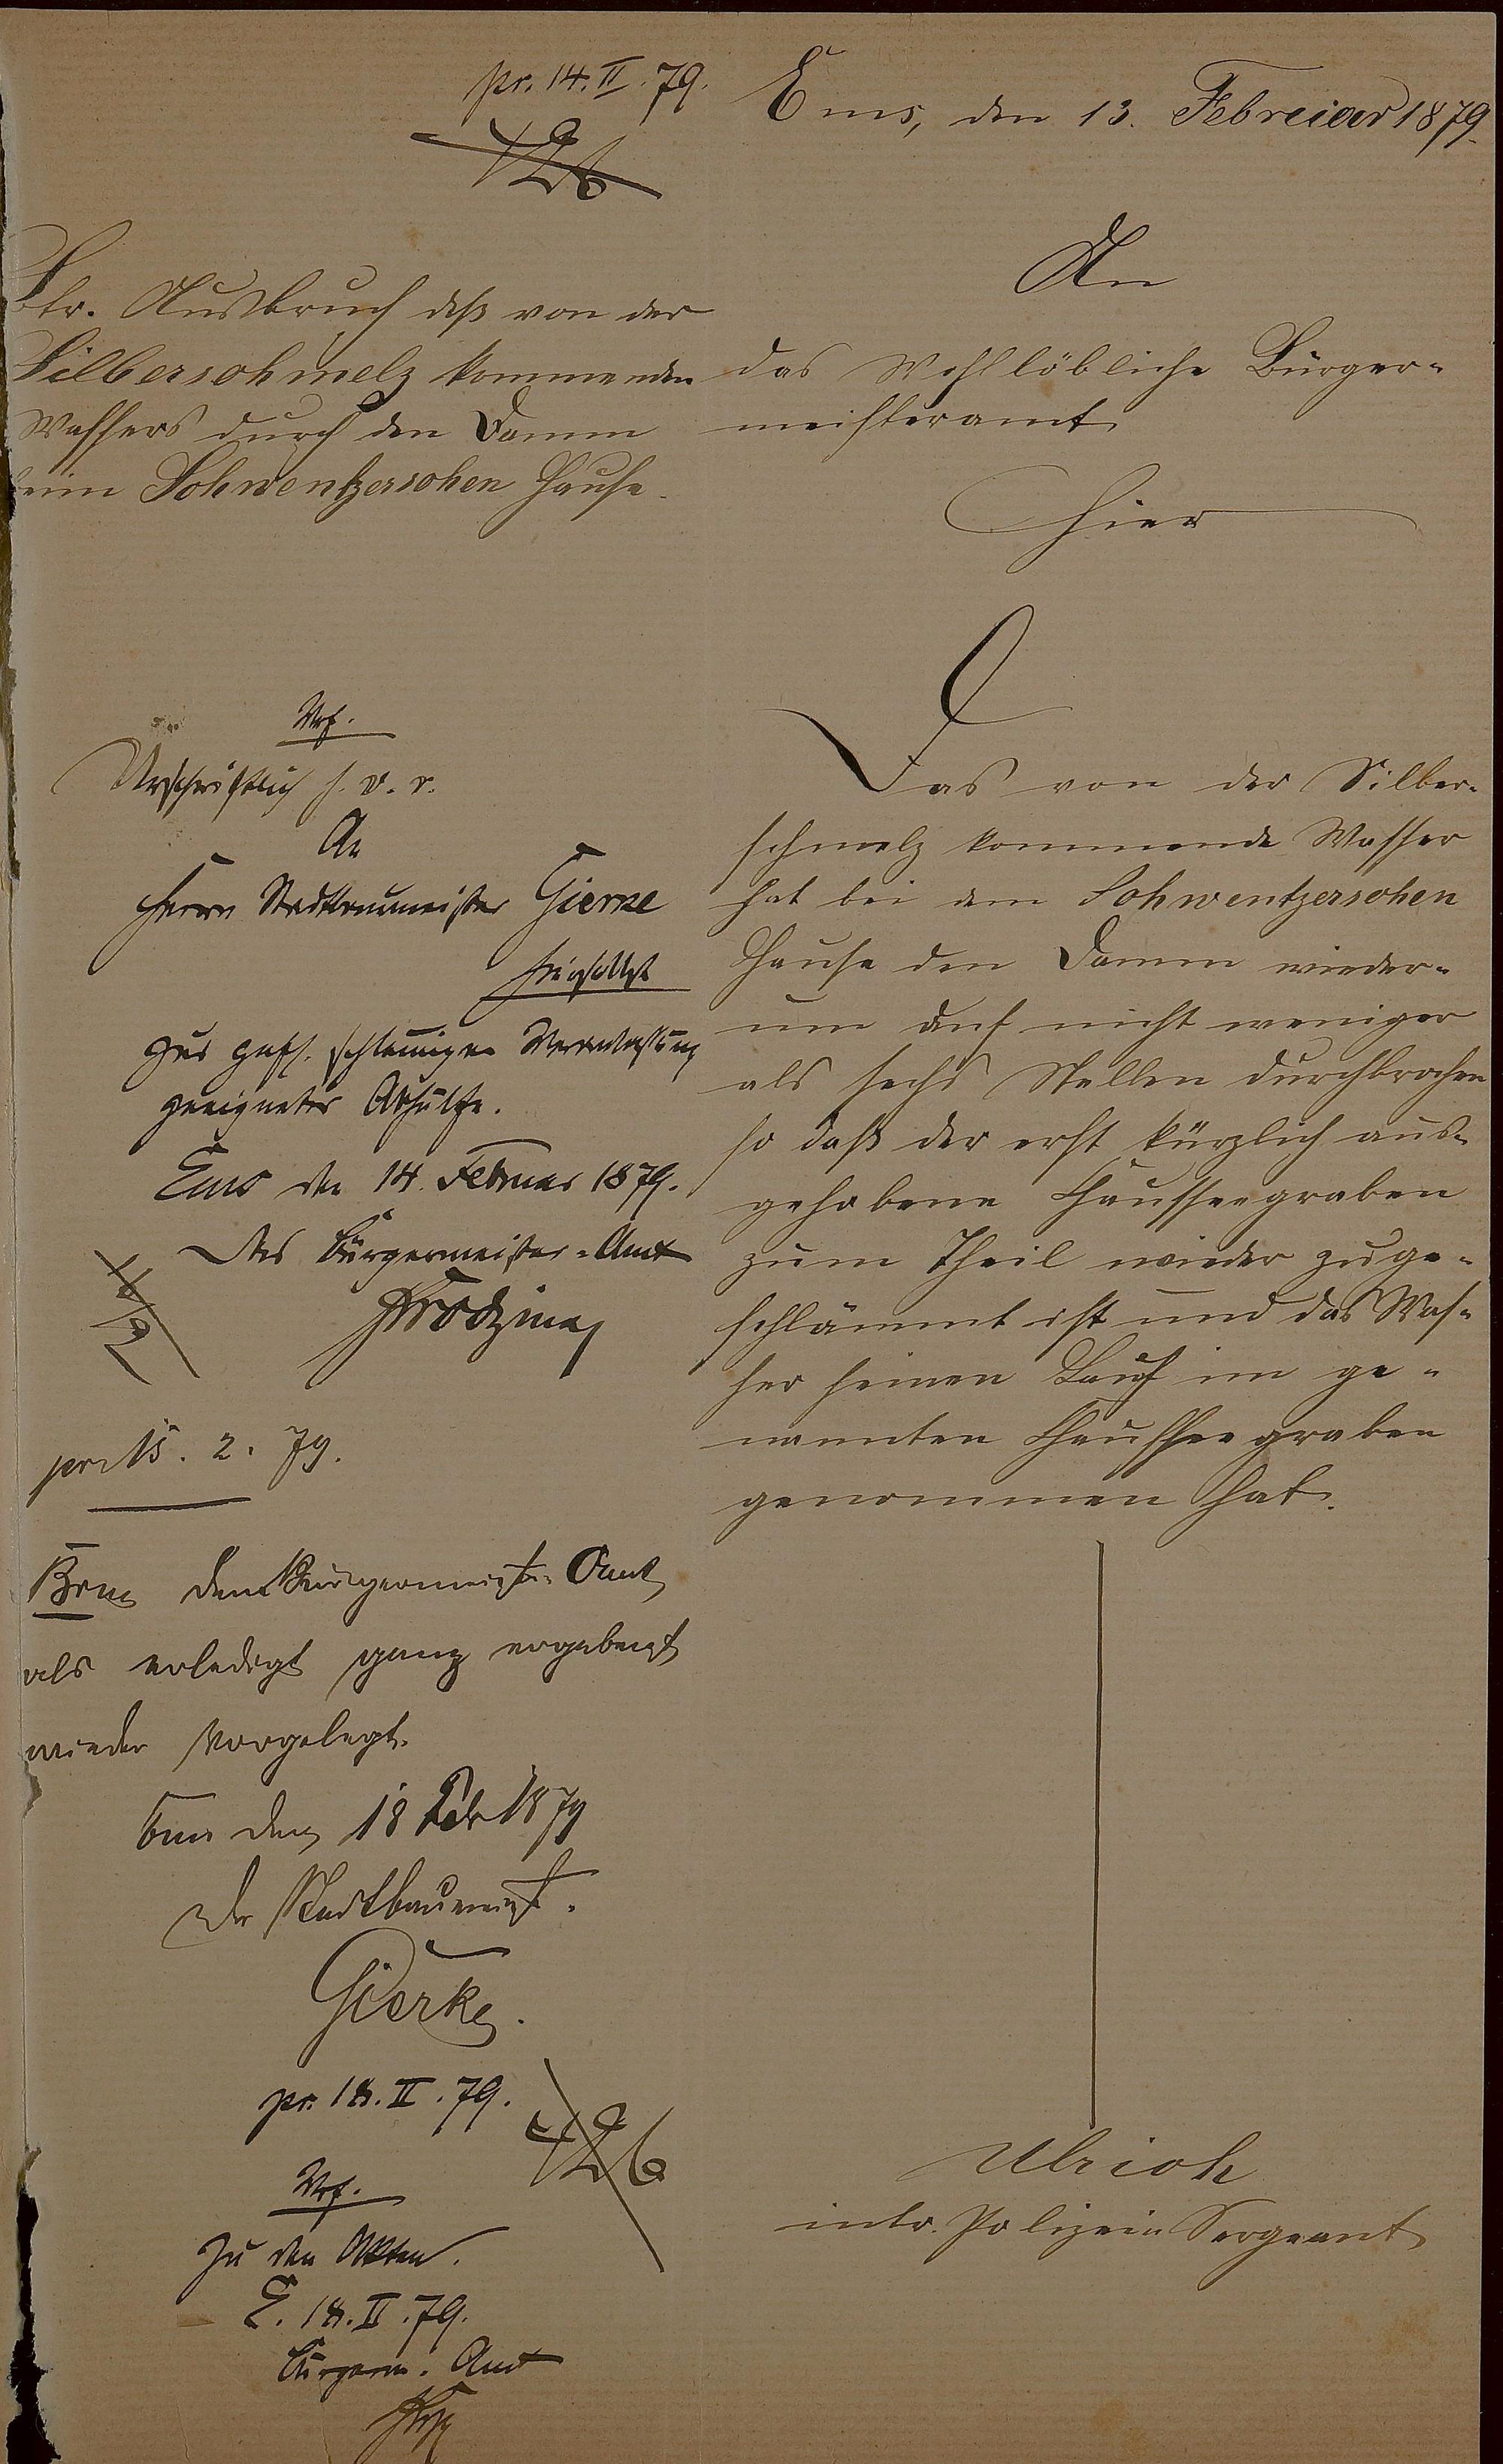 pr. 14. II. 79.
426
Ems, den 13. Februar 1879.
Btr. Ausbruch deß von der
Silberschmelz kommenden
Wassers durch den Damm
beim Schwentzerschen Hause.
An
das Wohllöbliche Bürger-
meisteramt
hier
Das von der Silber-
schmelz kommende Wasser
hat bei dem Schwentzerschen
Hause den Damm wieder-
um auf nicht weniger
als sechs Stellen durchbrochen
so daß der erst kürzlich aus-
gehobene Chausseegraben
zum Theil wieder zuge-
schlämmt ist und das Was-
ser seinen Lauf im ge-
nannten Chausseegraben
genommen hat.
Ulrich
intr. Polizei-Sergeant
Vrf.
Urschriftlich s. v. r.
An
Herrn Stadtbaumeister Gierke
hierselbst
zur gefl. schleunigen Veranlassung
geeigneter Abhülfe.
Ems den 14. Februar 1879.
Das Bürgermeister-Amt
14/2
pr. 15. 2. 79.
Brm dem Bürgermeister-Amt
als erledigt ganz ergebenst
wieder vorgelegt.
Ems den 18 Feb 1879
Der Stadtbaumeist.
Gierke.
pr. 18. II. 79.
426
Vrf.
Zu den Akten.
E. 18. II. 79.
Bürgerm. Amt